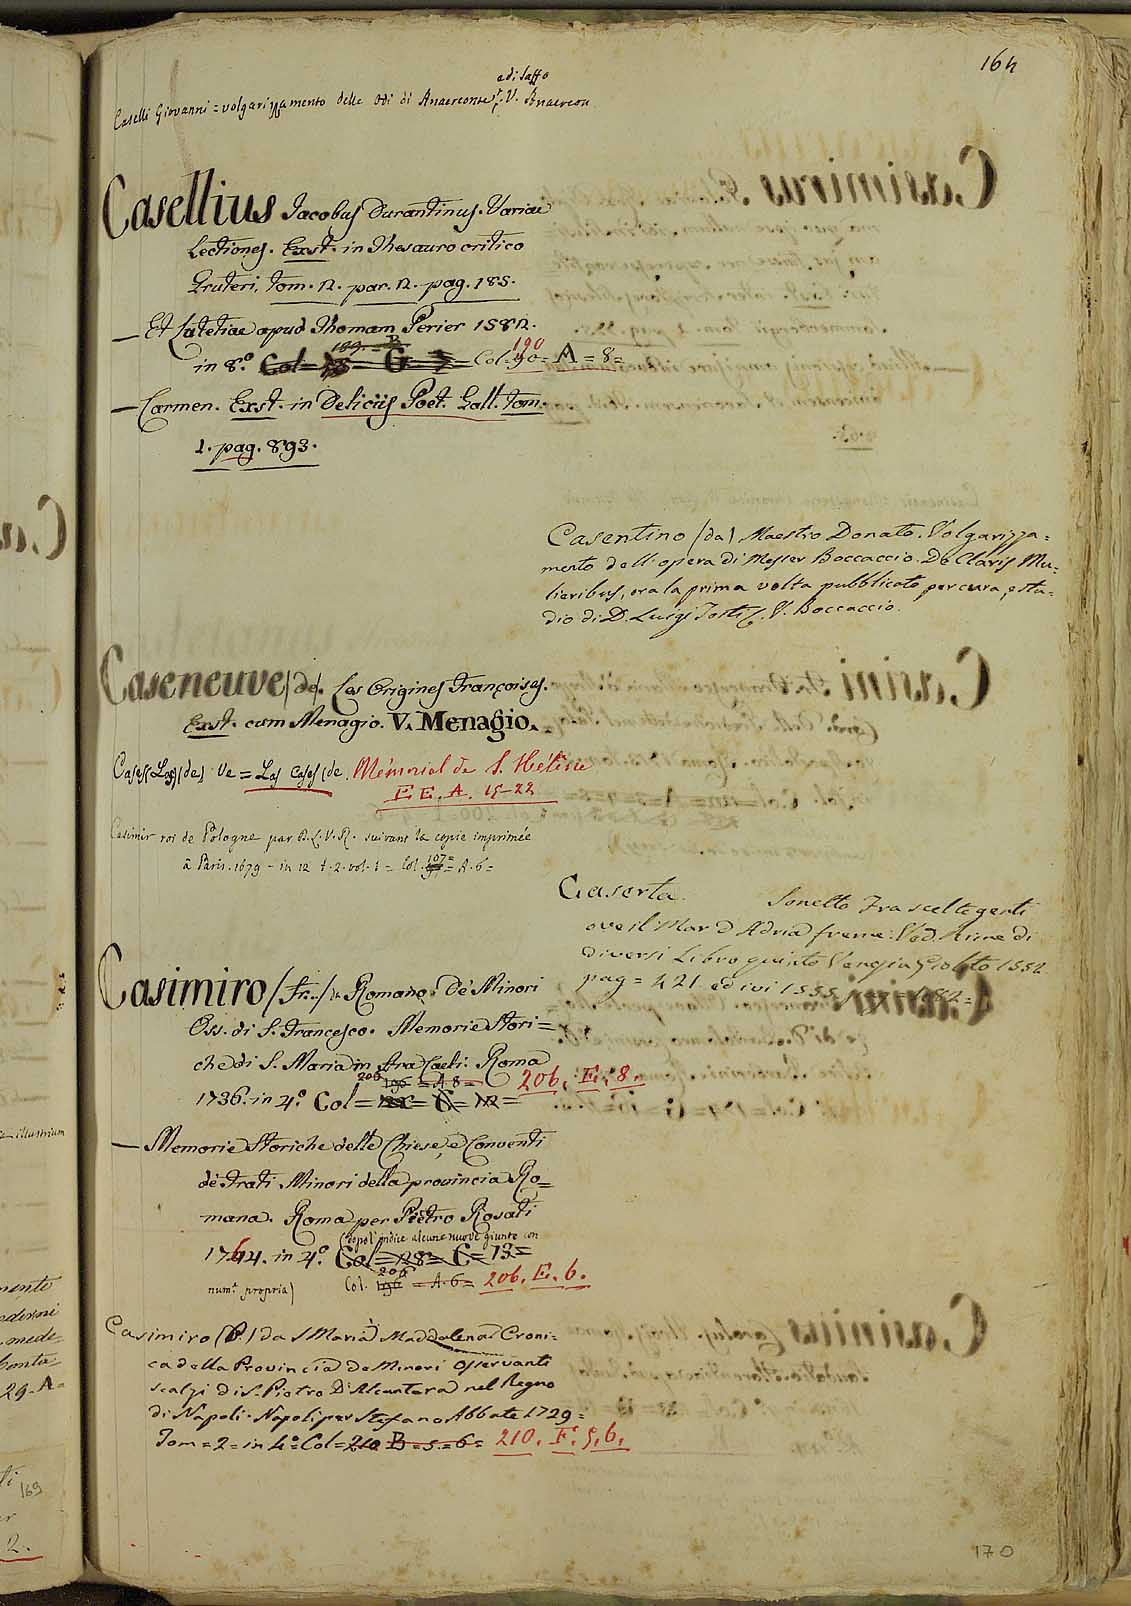 164
e di Saffo
Caselli Giovanni = volgarizzamento delle Odi di Anacreonte, V. Anacreon
Casellius Jacobus Durantinus. Variae
Lectiones. Exst. in Thesauro critico
Gruteri, tom. 2. par. 2. pag. 185.
— Et Lutetiae apud Thomam Perier 1582.
190
in 8.° Col = Col. 90 = A = 8 =
— Carmen. Exst. in Deliciis Poet. Gall. tom.
1. pag. 893.
Casentino (da) Maestro Donato. Volgarizza=
mento dell'opera di Messer Boccaccio. De Claris Mu-
lieribus, ora la prima volta pubblicato per cura, e stu-
dio di D. Luigi Tosti. V. Boccaccio.
Caseneuve (de). Les Origines Françoises.
Exst. cum Menagio. V. Menagio.
Cases (Las) (de) Ve = Las Cases (de. Mémorial de S. Hélène
E E. A. 15-22
Casimir roi de Pologne par D. L. V. R. suivant la copie imprimée
à Paris. 1679 - in 12 t. 2. vol. 1 = Col. 107 = A. 6 =
Caserta. Sonetto Fra scelte genti
ove il Mar d'Adria freme. Ved. Rime di
diversi Libro quinto Venezia Giolito 1552
pag = 421. ed ivi 1555
Casimiro (Fr.) Romano. De' Minori
Oss. di S. Francesco. Memorie Stori=
che di S. Maria in Ara Caeli. Roma
206 196 = A 8 = 206. E. 8.
1736. in 4.° Col = C = 12 =
— Memorie Storiche delle Chiese, e Conventi
de' Frati Minori della provincia Ro=
mana. Roma per Pietro Rosati
(dopo l'indice alcune nuove giunte con
1764. in 4.° Col = 128 = C = 13 =
206
num.e propria) Col. 196 = A. 6 = 206. E. 6.
Casimiro (P.) da S Maria Maddalena Croni=
ca della Provincia de Minori Osservanti
scalzi di S. Pietro D'Alcantara nel Regno
di Napoli. Napoli per Stefano Abbate 1729 =
Tom = 2 = in 4.° Col = 210 B = 5. = 6 = 210. F. 5. 6.
170
illustrium
29. A =
169
2.